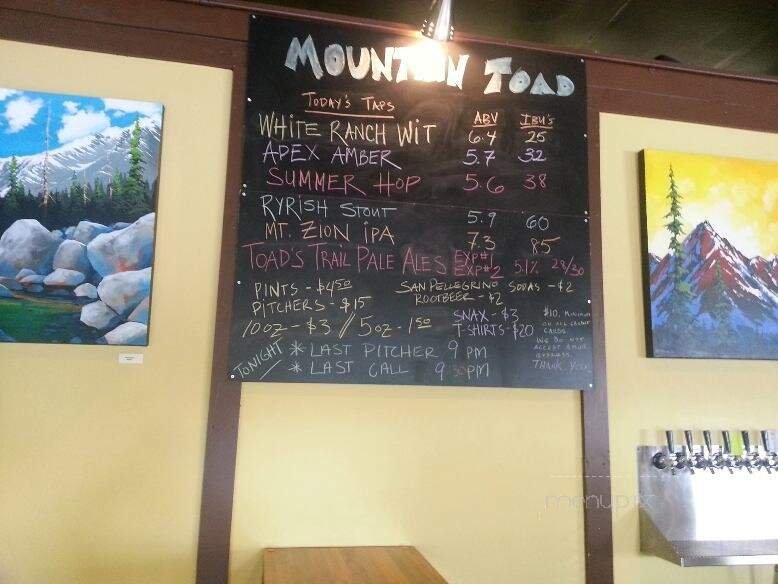 MOUNTAIN TOAD
TODAY'S TAPS ABV IBU'S
WHITE RANCH WIT 6.4 25
APEX AMBER 5.7 32
SUMMER HOP 5.6 38
RYRISH STOUT 5.9 60
MT. ZION IPA 7.3 85
TOAD'S TRAIL PALE ALES EXP#1 EXP#2 5.1% 28/30
PINTS - $4.50 SAN PELLEGRINO SODAS - $2
PITCHERS - $15 ROOTBEER - $2
10 OZ - $3 // 5 OZ - 1.50 SNAX - $3
T-SHIRTS - $20
$10. MINIMUM
ON ALL CREDIT
CARDS.
WE DO NOT
ACCEPT AMER.
EXPRESS.
THANK YOU
TONIGHT * LAST PITCHER 9 PM
* LAST CALL 9:30PM
menupix